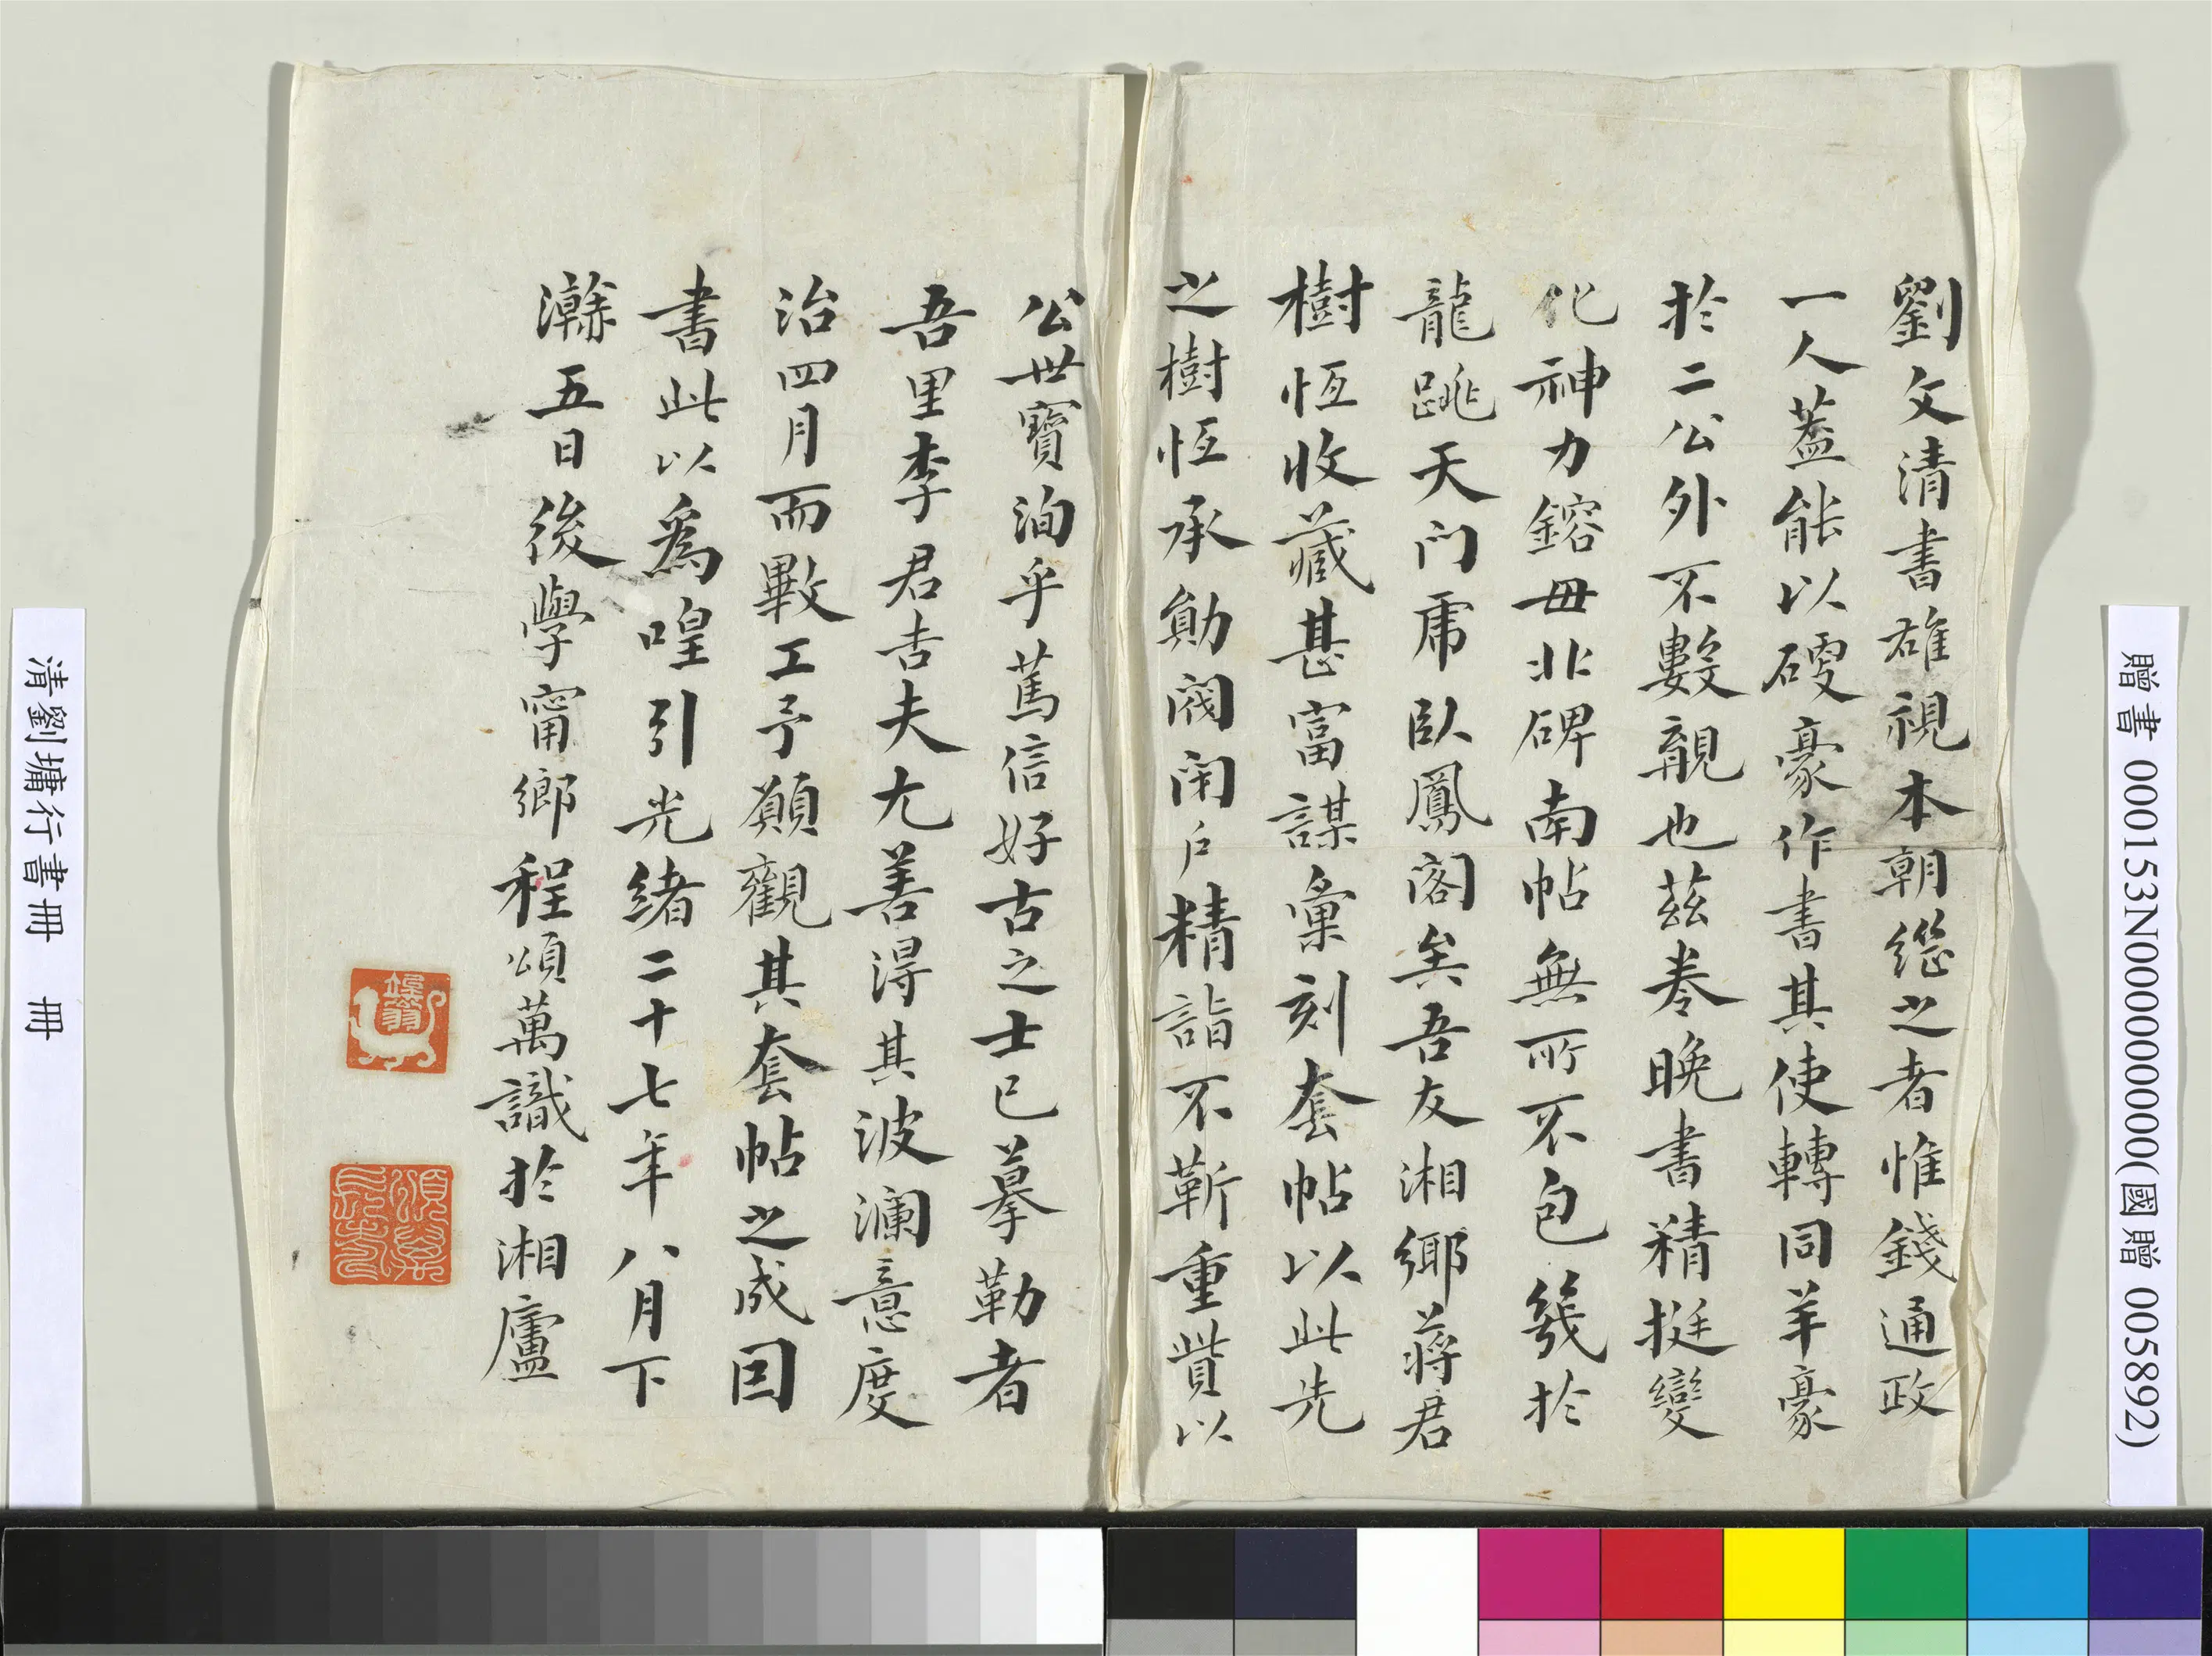 劉文清書雄視本朝繼之者惟錢通政
一人蓋能以硬豪作書其使轉同羊豪
於二公外不數覯也茲卷晚書精挺變
化神力鎔毋北碑南帖無所不包幾於
龍跳天门虎臥鳳閣矣吾友湘鄉蔣君
樹恆收藏甚富謀彙刻套帖以此先
之樹恆承勛閥閈戶精詣不蘄重貲以
公世寶洵乎篤信好古之士已摹勒者
吾里李君吉夫尤善得其波瀾意度
治四月而斁工予願觀其套帖之成因
書此以爲喤引光緒二十七年八月下
瀚五日後學甯鄉程頌萬識於湘廬
頌萬長壽
清劉墉行書冊 冊
贈書 000153N000000000(國贈 005892)